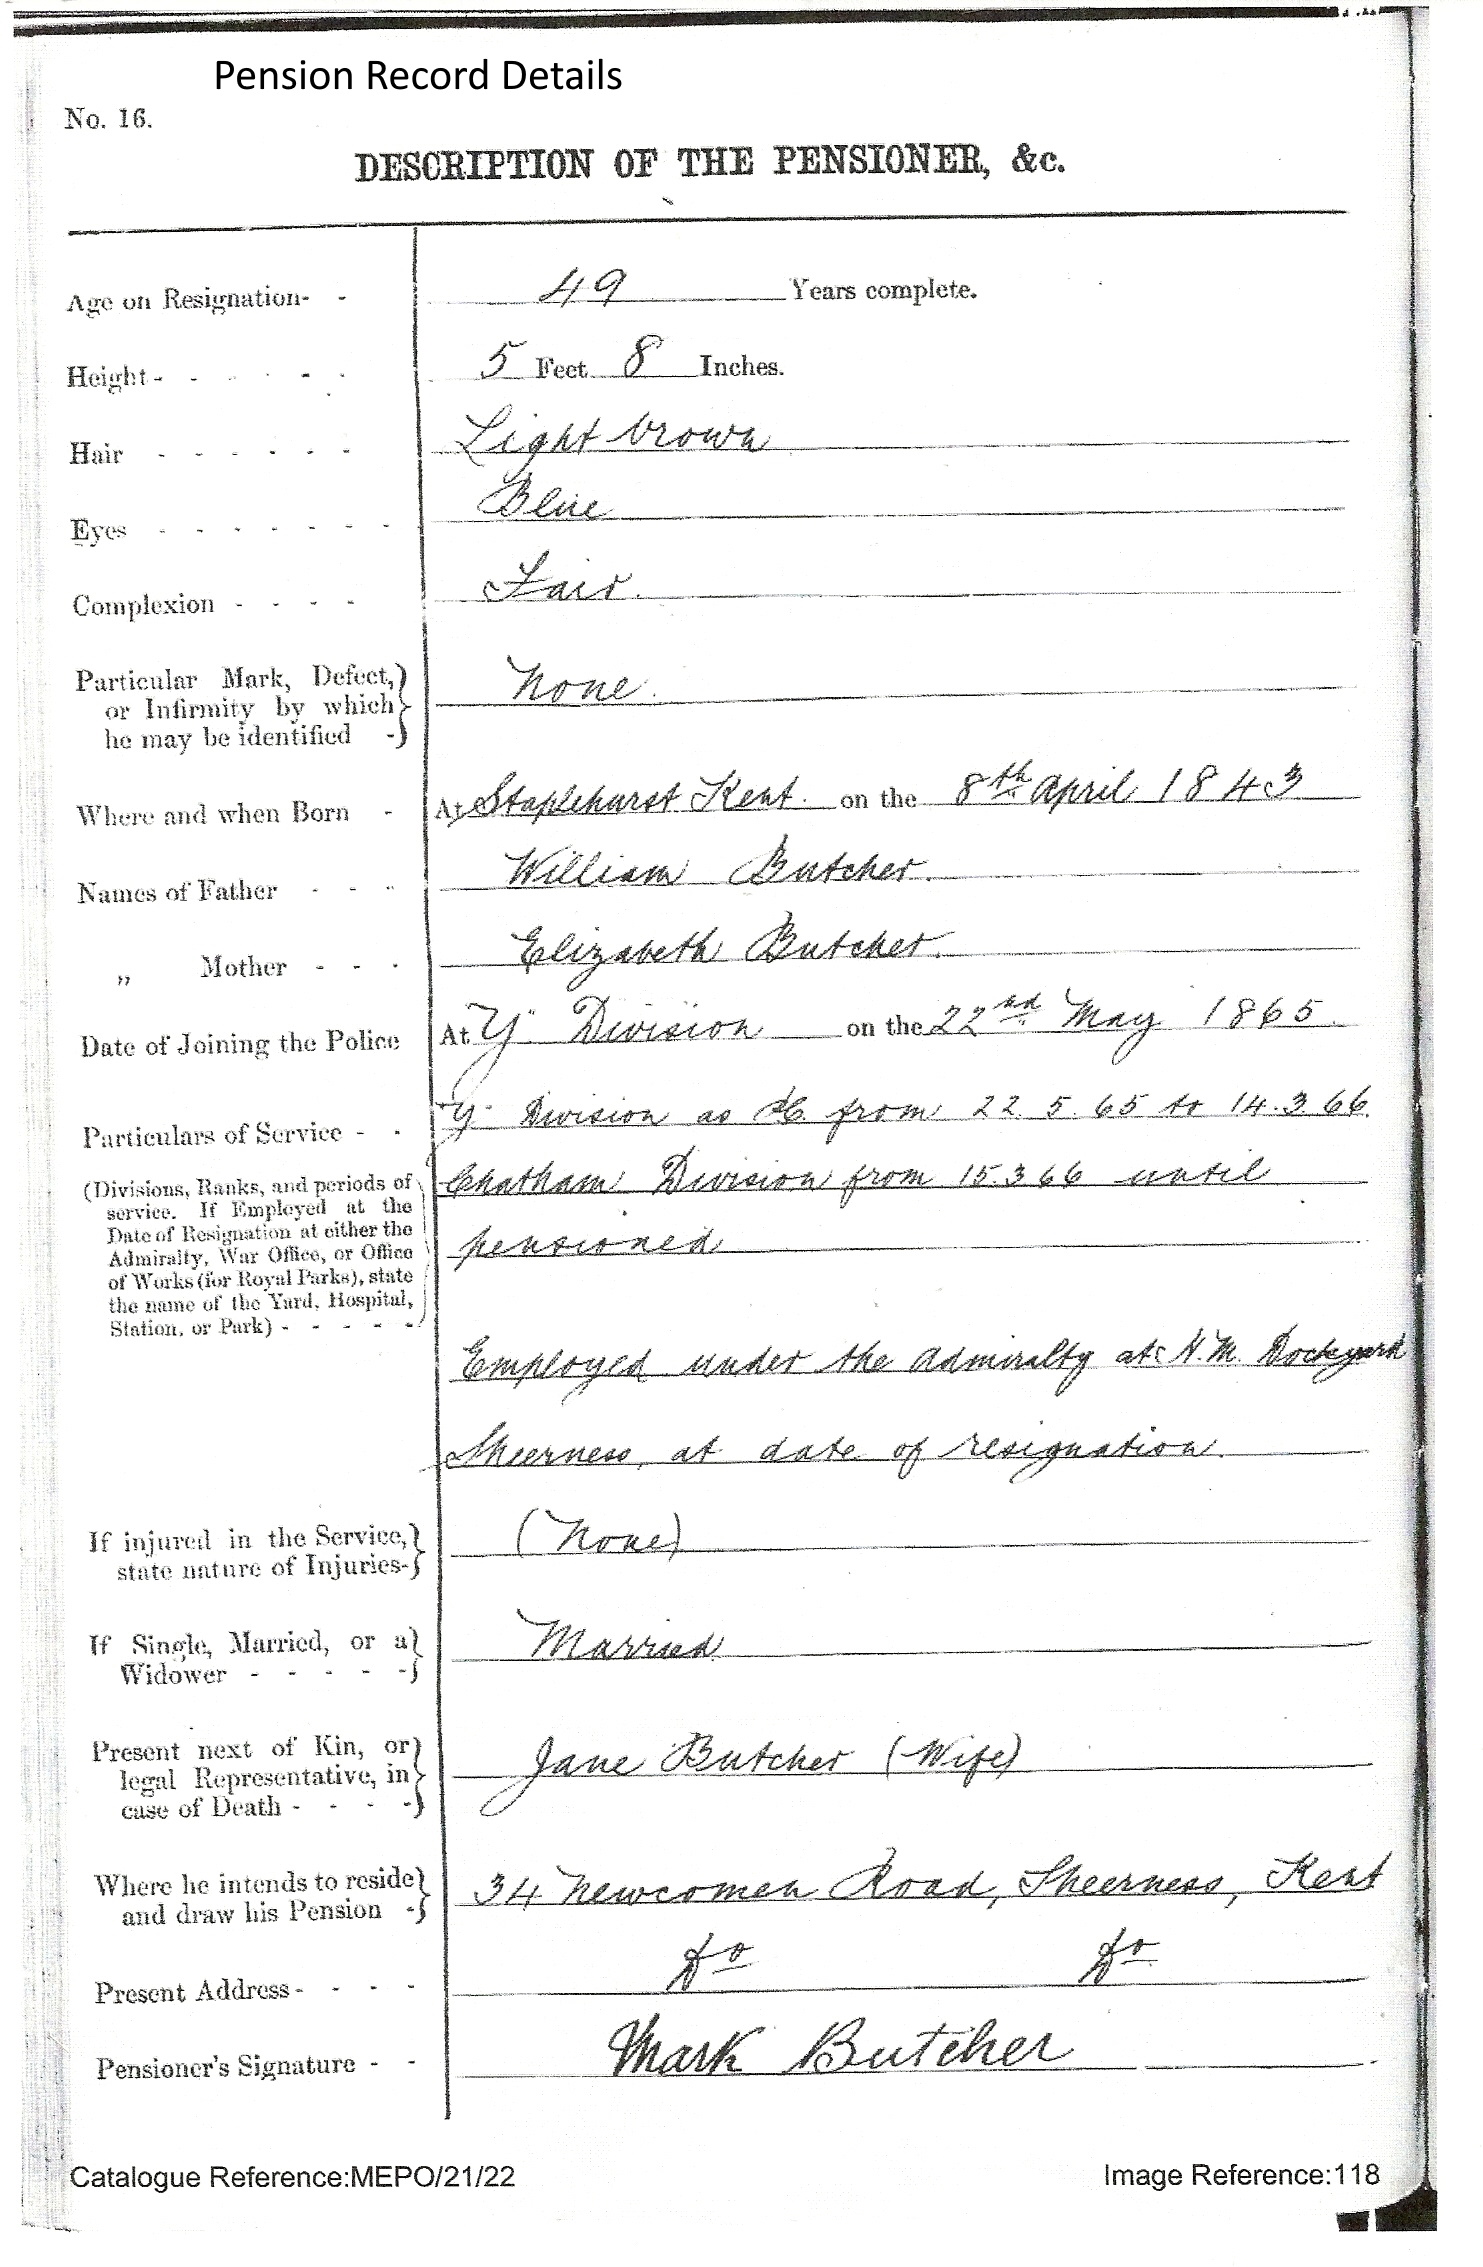 Pension Record Details
No. 16.
DESCRIPTION OF THE PENSIONER, &c.
Age on Resignation- - 49 Years complete.
Height- - - - - - 5 Feet 8 Inches.
Hair - - - - - - Light brown
Eyes - - - - - - - Blue
Complexion - - - - Fair.
Particular Mark, Defect,
or Infirmity by which
he may be identified - None.
Where and when Born - At Staplehurst Kent. on the 8th April 1843
Names of Father - - - William Butcher.
„ Mother - - - Elizabeth Butcher.
Date of Joining the Police At "Y" Division on the 22nd May 1865.
Particulars of Service - - "Y" Division as PC. from 22.5.65 to 14.3.66.
(Divisions, Ranks, and periods of
service. If Employed at the
Date of Resignation at either the
Admiralty, War Office, or Office
of Works (for Royal Parks), state
the name of the Yard, Hospital,
Station, or Park) - - - - -
Chatham Division from 15.3.66 until
pensioned
Employed under the Admiralty at H.M. Dockyard
Sheerness, at date of resignation.
If injured in the Service,
state nature of Injuries- (None)
If Single, Married, or a
Widower - - - - - Married
Present next of Kin, or
legal Representative, in
case of Death - - - - Jane Butcher (Wife)
Where he intends to reside
and draw his Pension - 34 Newcomen Road, Sheerness, Kent
Present Address- - - - Do Do
Pensioner's Signature - - Mark Butcher
Catalogue Reference:MEPO/21/22
Image Reference:118